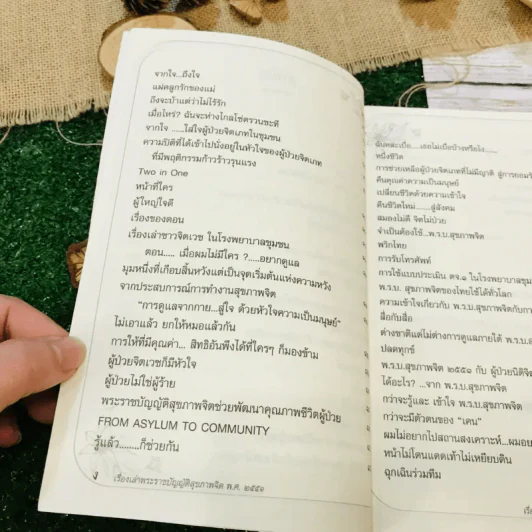 จากใจ...ถึงใจ
แม่คลูกรักของแม่
ถึงจะบ้าแต่ว่าไม่ไร้รัก
เมื่อไหร่? ฉันจะห่างไกลโซ่ตรวนซะที
จากใจ ......ใส่ใจผู้ป่วยจิตเภทในชุมชน
ความปิติที่ได้เข้าไปนั่งอยู่ในหัวใจของผู้ป่วยจิตเภท
ที่มีพฤติกรรมก้าวร้าวรุนแรง
Two in One
หน้าที่ใคร
ผู้ใหญ่ใจดี
เรื่องของตอน
เรื่องเล่าชาวจิตเวช ในโรงพยาบาลชุมชน
ตอน..... เมื่อผมไม่มีใคร ?.....อยากดูแล
มุมหนึ่งที่เกือบสิ้นหวังแต่เป็นจุดเริ่มต้นแห่งความหวัง
จากประสบการณ์การทำงานสุขภาพจิต
"การดูแลจากกาย...สู่ใจ ด้วยหัวใจความเป็นมนุษย์"
ไม่เอาแล้ว ยกให้หมอแล้วกัน
การให้ที่มีคุณค่า... สิทธิอันพึงได้ที่ใครๆ ก็มองข้าม
ผู้ป่วยจิตเวชก็มีหัวใจ
ผู้ป่วยไม่ใช่ผู้ร้าย
พระราชบัญญัติสุขภาพจิตช่วยพัฒนาคุณภาพชีวิตผู้ป่วย
FROM ASYLUM TO COMMUNITY
รู้แล้ว........ก็ช่วยกัน
ง เรื่องเล่าพระราชบัญญัติสุขภาพจิต พ.ศ. ๒๕๕๑
ฉันหละเบื่อ....เธอไม่เบื่อบ้างหรือไง......
หนึ่งชีวิต
การช่วยเหลือผู้ป่วยจิตเภทที่ไม่มีญาติ สู่การยอมรั
คืนคุณค่าความเป็นมนุษย์
เปลี่ยนชีวิตด้วยความเข้าใจ
คืนชีวิตใหม่.......สู่สังคม
สมองไม่ดี จิตไม่ป่วย
จำเป็นต้องใช้...พ.ร.บ.สุขภาพจิต
พริกไทย
การรับโทรศัพท์
การใช้แบบประเมิน ตจ.๑ ในโรงพยาบาลชุม
พ.ร.บ. สุขภาพจิตของไทยใช้ได้ทั่วโลก
ความเข้าใจเกี่ยวกับ พ.ร.บ.สุขภาพจิตกับการ
สื่อกับสื่อ
ต่างชาติแต่ไม่ต่างการดูแลภายใต้ พ.ร.บ.ส
ปลดทุกข์
พ.ร.บ.สุขภาพจิต ๒๕๕๑ กับ ผู้ป่วยนิติจิต
ได้อะไร? ...จาก พ.ร.บ.สุขภาพจิต
กว่าจะรู้และ เข้าใจ พ.ร.บ.สุขภาพจิต
กว่าจะมีตัวตนของ "เคน"
ผมไม่อยากไปสถานสงเคราะห์...ผมอย
หน้าไม่โดนแดดเท้าไม่เหยียบดิน
ฉุกเฉินร่วมทีม
เรื่